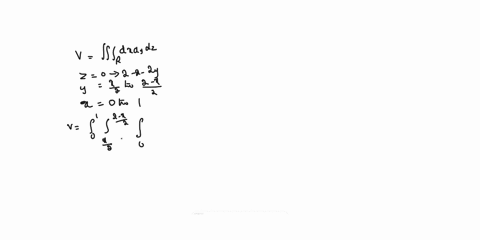 V = ∭_R dx dy dz
z = 0 → 2-x-2y
y = x/2 to (2-x)/2
x = 0 to 1
V = ∫_0^1 ∫_{x/2}^{(2-x)/2} ∫_0